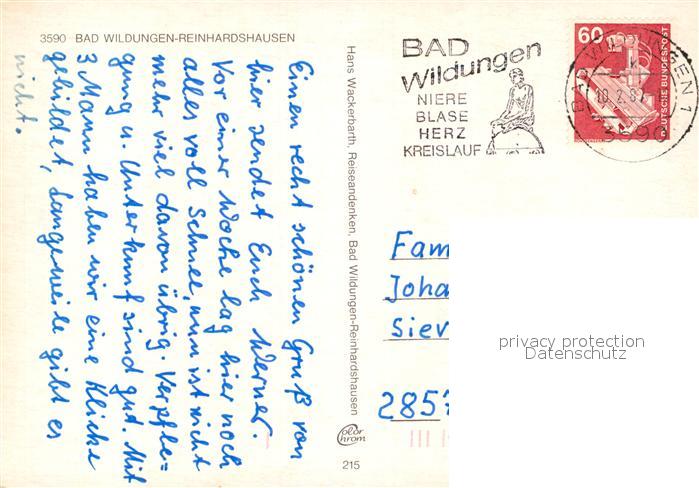 3590 BAD WILDUNGEN-REINHARDSHAUSEN
Einen recht schönen Gruß von
hier sendet Euch Werner.
Vor einer Woche lag hier noch
alles voll Schnee, nun ist nicht
mehr viel davon übrig. Verpfle=
gung u. Unterkunf sind gut. Mit
3 Mann haben wir eine Klicke
gebildet, Langeweile gibt es
nicht.
Hans Wackerbarth, Reiseandenken, Bad Wildungen-Reinhardshausen
color
chrom
215
BAD
Wildungen
NIERE
BLASE
HERZ
KREISLAUF
60
DEUTSCHE BUNDESPOST
BAD WILDUNGEN 1
3590
Fam
Joha
Siev
2857
privacy protection
Datenschutz